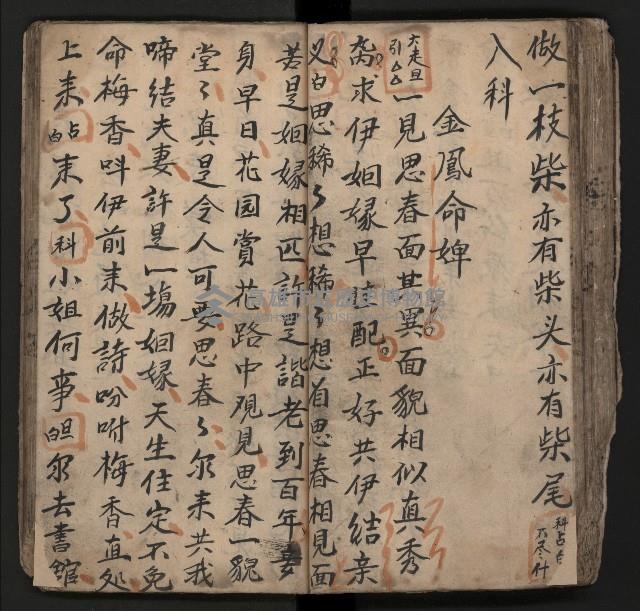 做一枝柴亦有柴头亦有柴尾
科占台
不尽什
入科
金鳳命婢
六走旦
引
一見思春面其異面貌相似真秀
求伊姻緣早
配正好共伊結亲
又白思稀々想稀々想着思春相見面
若是姻緣相匹許是諧老到百年妻
身早日花园賞花路中覌見思春一貌
堂々真是令人可
思春々尔来共我
啼結夫妻許是一塲姻緣天生住定不免
命梅香呌伊前来做詩吩咐梅香直処
上来
占白
来了
科
小姐何事
旦白
尔去書舘
高雄市立歷史博物館